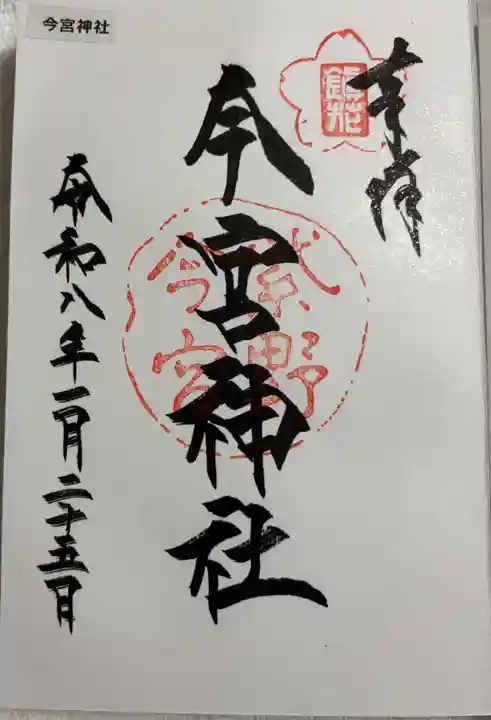 今宮神社
奉拝
鎮花
今宮神社
紫野
今宮
令和八年二月二十五日